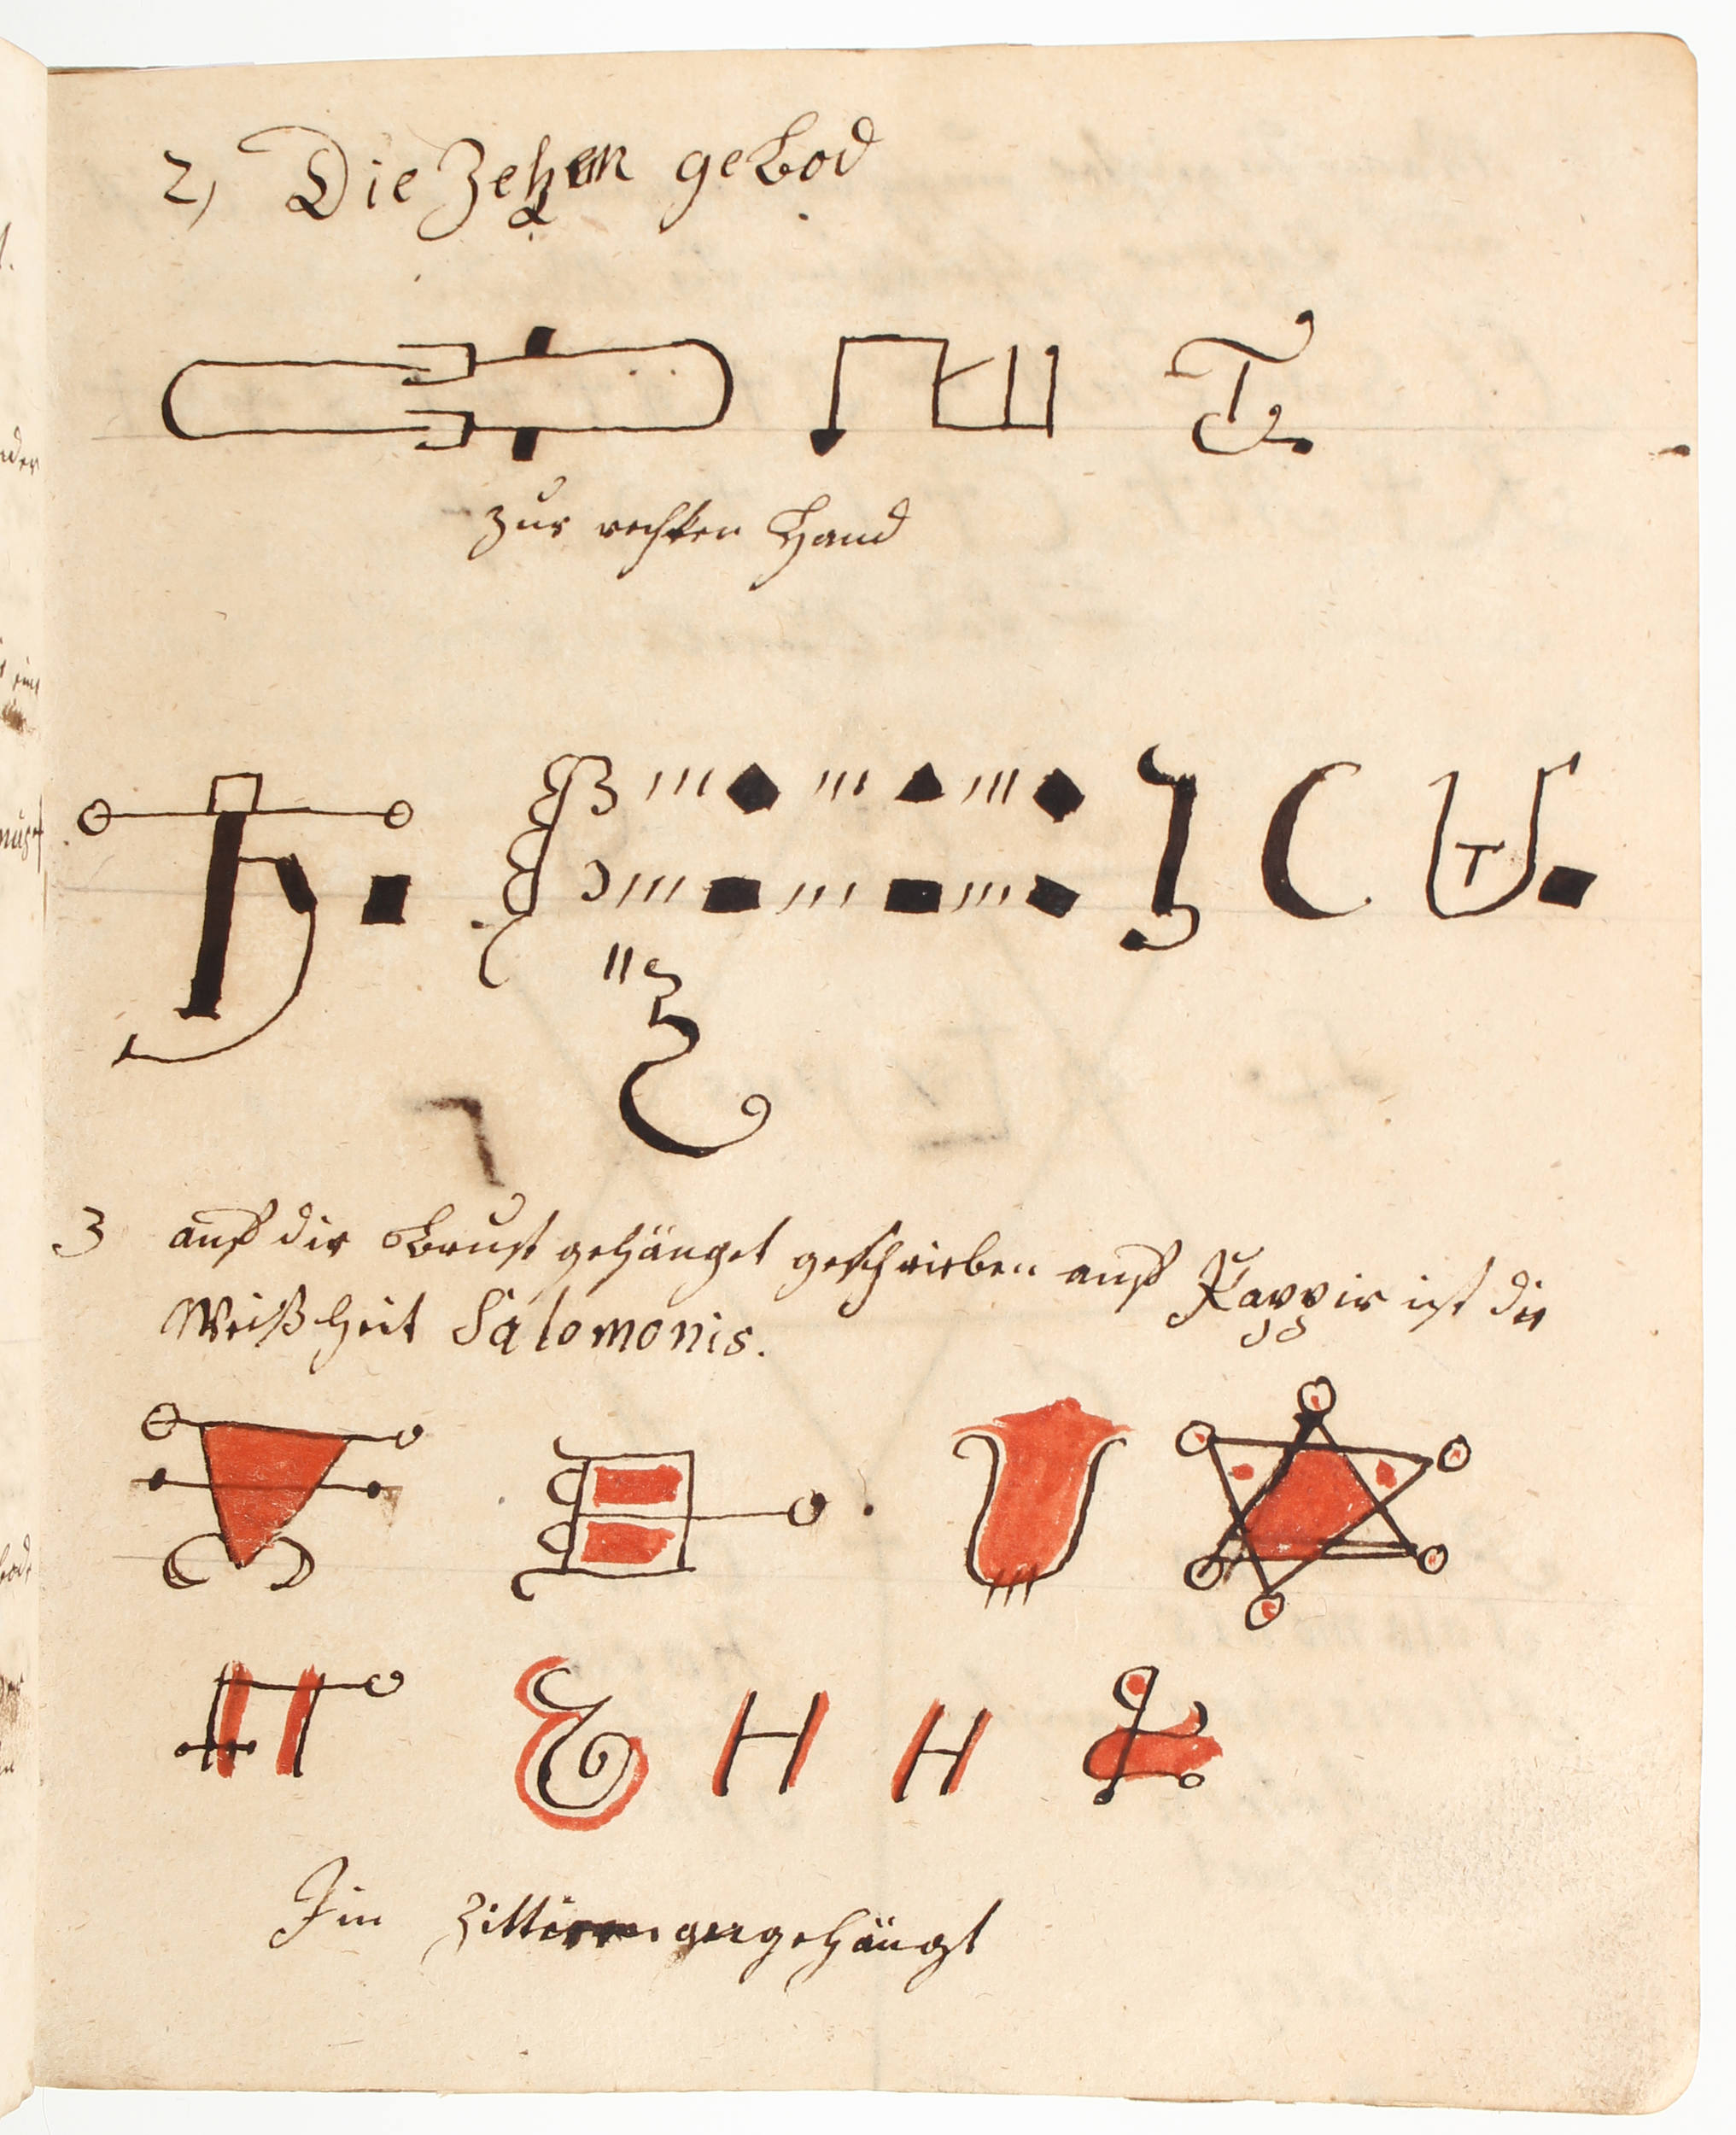 2) Die Zehen geBod
T.
zur rechten Hand
C
T
3 auf die Brust gehänget geschrieben auf Pappir ist die
Weißheit Salomonis.
H H
angehängt